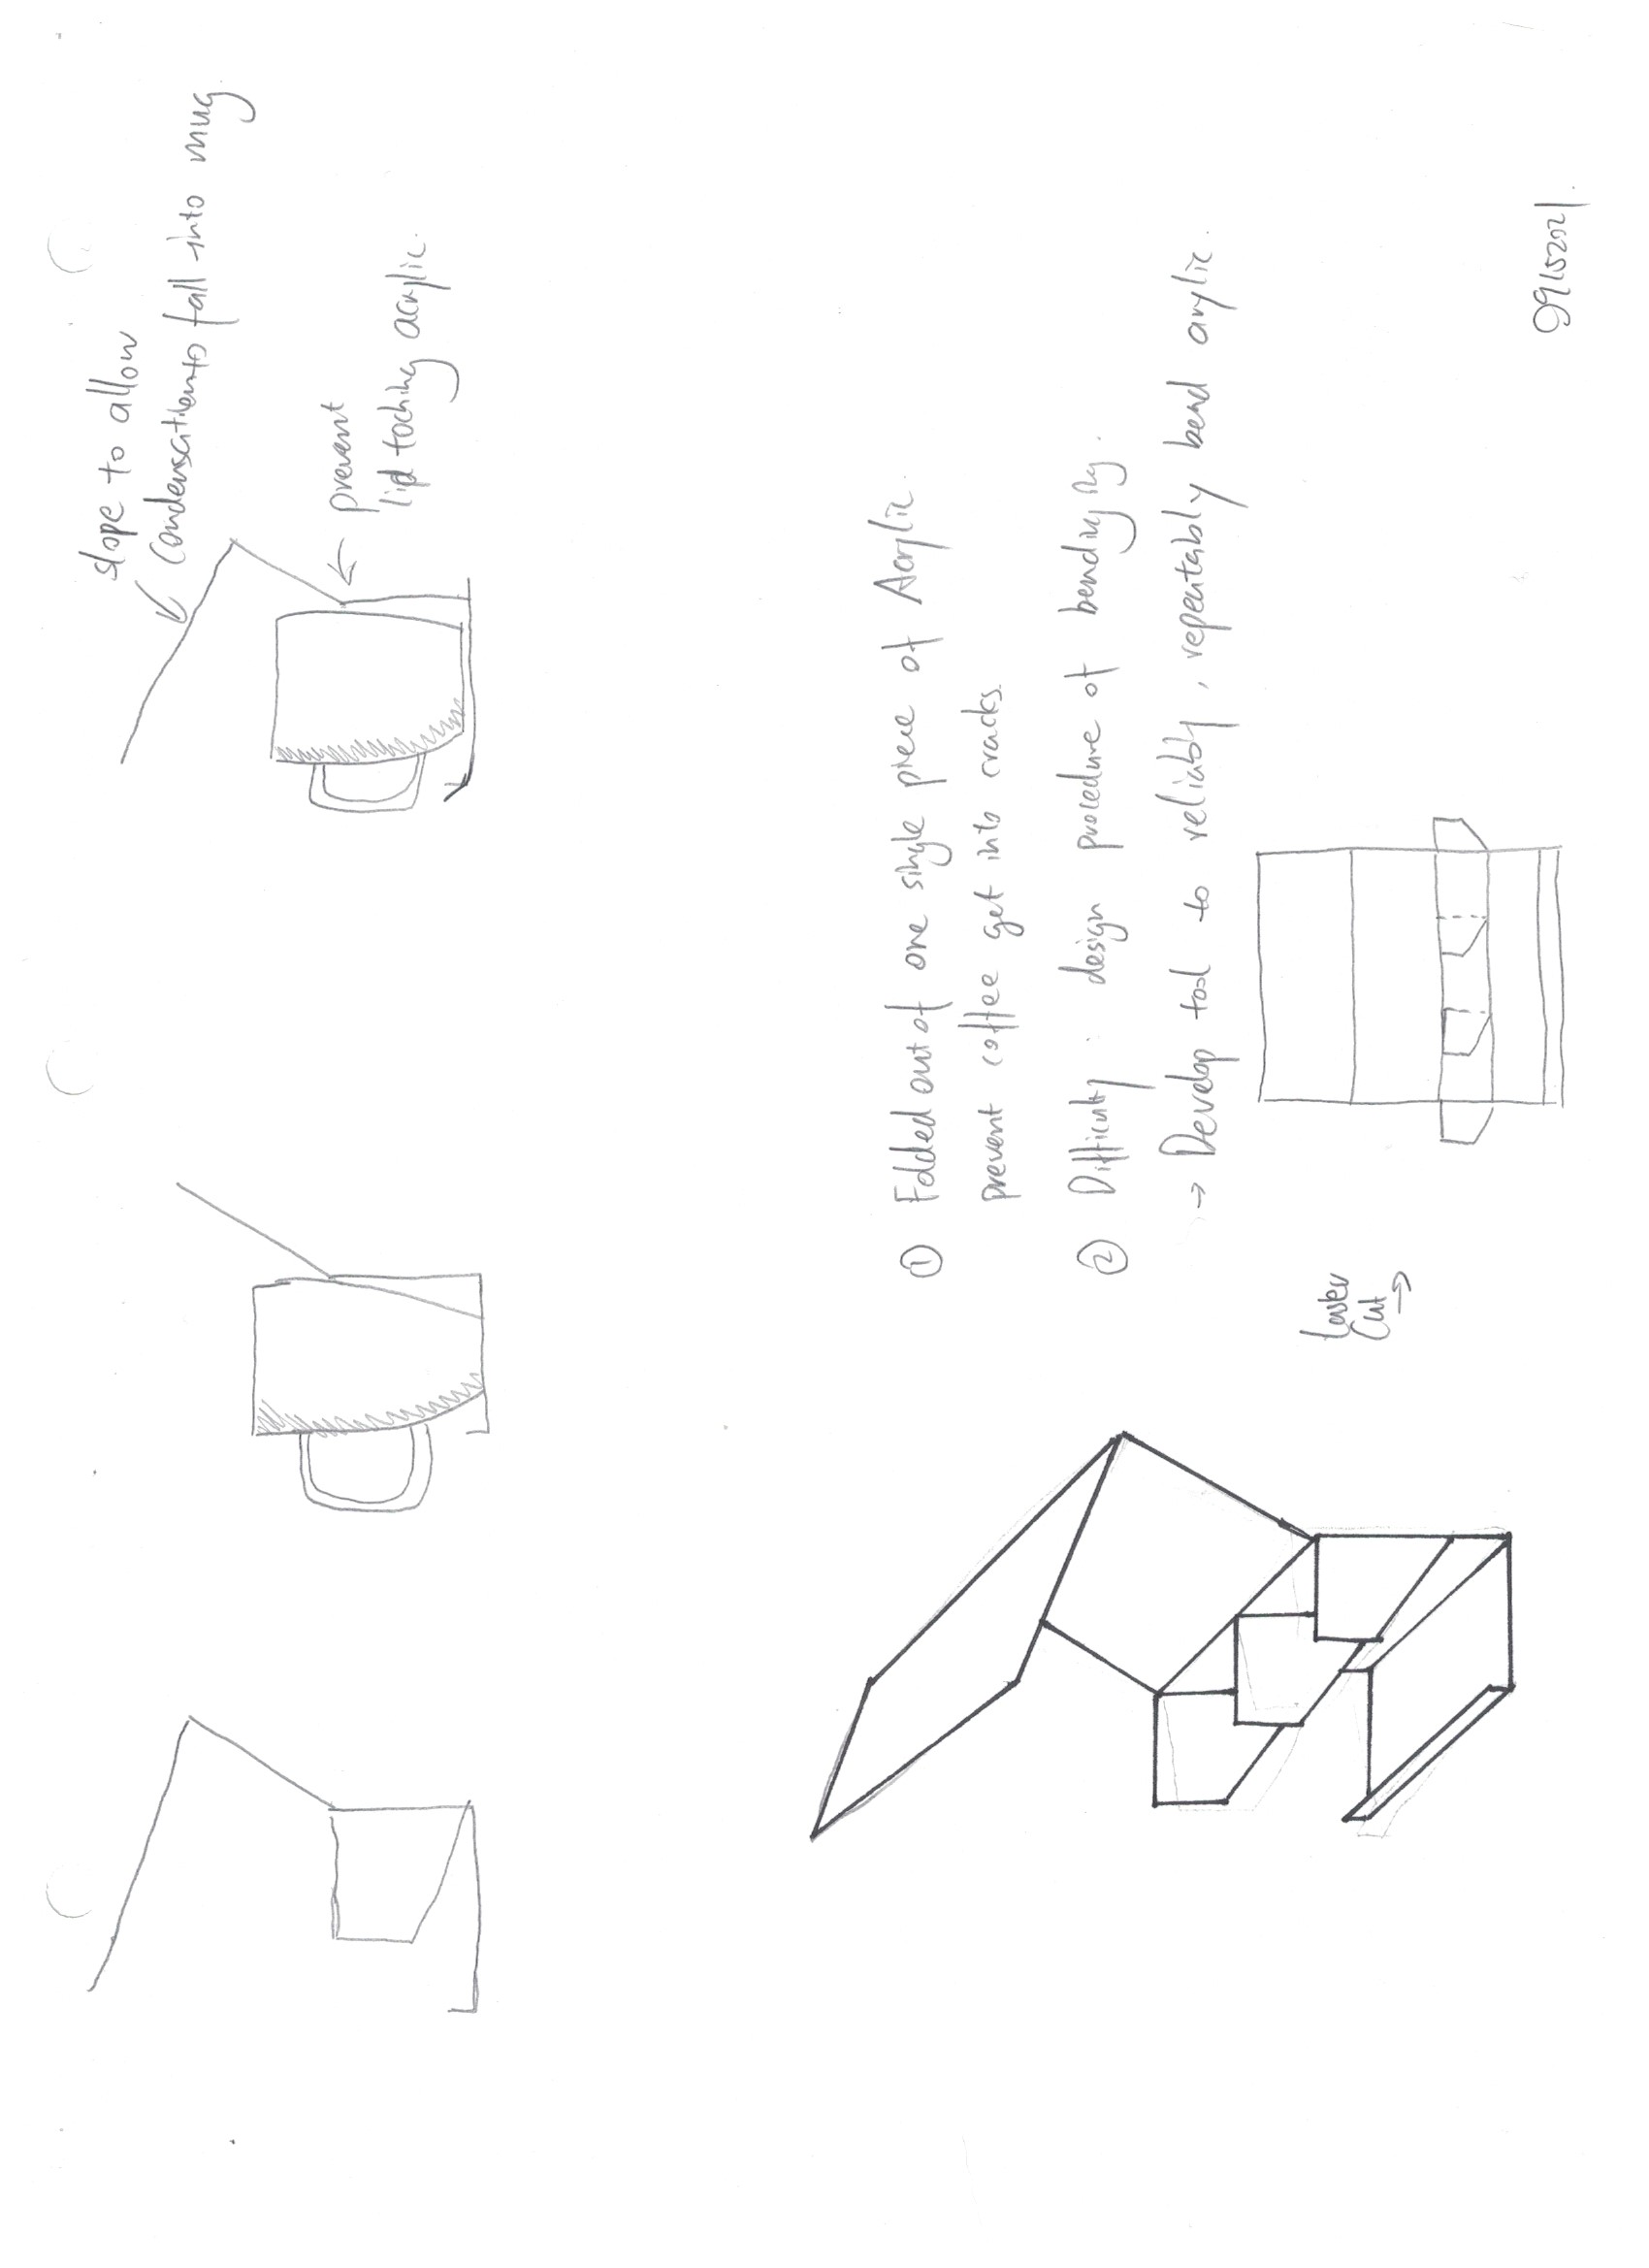 slope to allow
Condensation to fall into mug
prevent
lid toching acrylic.
① Folded out of one single piece of Acrylic.
prevent coffee get into cracks.
② Difficulty : design procedure of bending
→ Develop tool to reliably, repeatably bend arylic.
Laser
Cut
→
09152021.